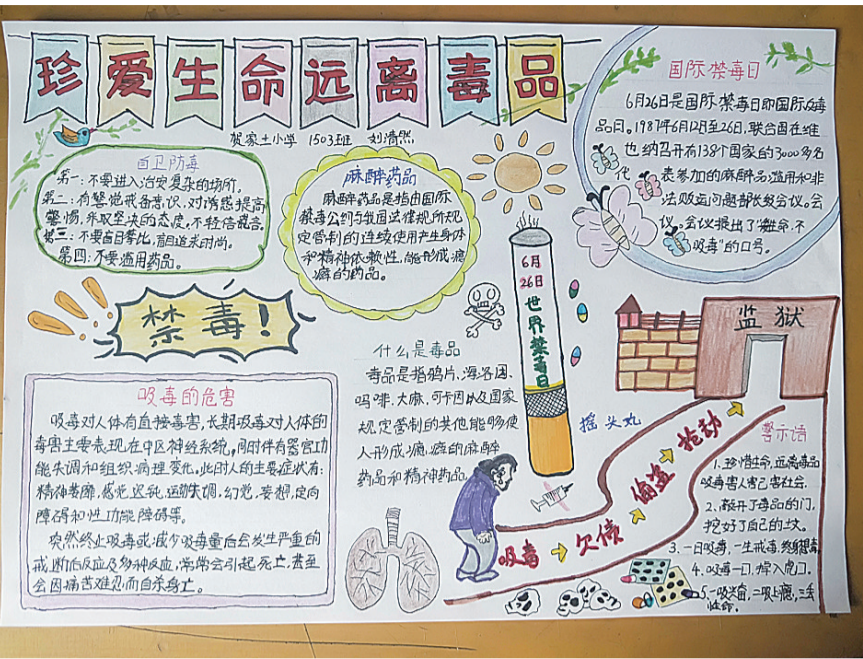 珍爱生命远离毒品
贺家土小学 1503班 刘清然
自卫防毒
第一：不要进入治安复杂的场所。
第二：有警觉戒备意识，对诱惑提高
警惕，采取坚决的态度，不轻信谎言。
第三：不要盲目攀比，盲目追求时尚。
第四：不要滥用药品。
麻醉药品
麻醉药品是指由国际
禁毒公约与我国法律规所规
定管制的连续使用产生身体
和精神依赖性，能形成瘾
癖的药品。
国际禁毒日
6月26日是国际禁毒日即国际反毒
品日。1987年6月12至26日，联合国在维
也纳召开有138个国家的3000多名
代表参加的麻醉品滥用和非
法贩运问题部长级会议。会
议。会议提出了“爱生命，不
吸毒”的口号。
禁毒！
6月
26日
世界禁毒日
什么是毒品
毒品是指鸦片、海洛因、
吗啡、大麻、可卡因以及国家
规定管制的其他能够使
人形成瘾癖的麻醉
药品和精神药品。
监狱
摇头丸
吸毒的危害
吸毒对人体有直接毒害，长期吸毒对人体的
毒害主要表现在中区神经系统，同时伴有器官功
能失调和组织病理变化，此时人的主要症状有：
精神萎靡，感觉迟钝，运动失调，幻觉，妄想，定向
障碍和性功能障碍等。
突然终止吸毒或减少吸毒量后会发生严重的
戒断后反应及多种反应，常常会引起死亡，甚至
会因痛苦难忍而自杀身亡。
吸毒
欠债
偷盗
抢劫
警示语
1、珍惜生命，远离毒品
吸毒害人害己害社会，
2、敲开了毒品的门，
挖好了自己的坟。
3、一日吸毒，一生戒毒，终身想毒
4、吸毒一口，掉入虎口。
5、一吸兴奋，二吸上瘾，三丢
性命。